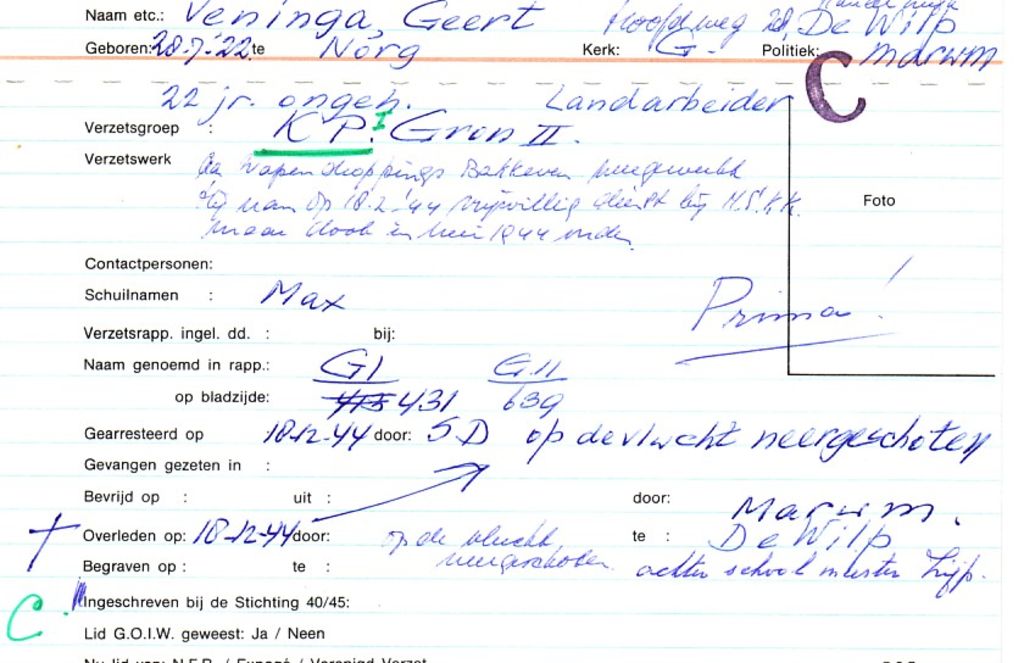 Naam etc.: Veninga, Geert Hoofdweg 28, De Wilp
Geboren: 28-7-'22 te Norg Kerk: G. Politiek: Marum
C
22 jr. ongeh. Landarbeider
Verzetsgroep : K.P. I Gron II.
Verzetswerk Aan wapendroppings Bakkeveen meegewerkt
Hij nam op 18-2-'44 vrijwillig dienst bij N.S.K.K.
maar dook in 1944 onder.
Foto
Contactpersonen:
Schuilnamen : Max
Prima!
Verzetsrapp. ingel. dd. : bij:
Naam genoemd in rapp.: G I G.II
op bladzijde: 413 431 639
Gearresteerd op 18-12-'44 door: S D op de vlucht neergeschoten
Gevangen gezeten in :
Bevrijd op : uit : door: Marum.
Overleden op: 18-12-'44 door: op de vlucht te : De Wilp
neergeschoten
Begraven op : te : achter school meester Zijp.
Ingeschreven bij de Stichting 40/45:
C
Lid G.O.I.W. geweest: Ja / Neen
Nu lid van: N.F.R. / Expogé / Verenigd Verzet